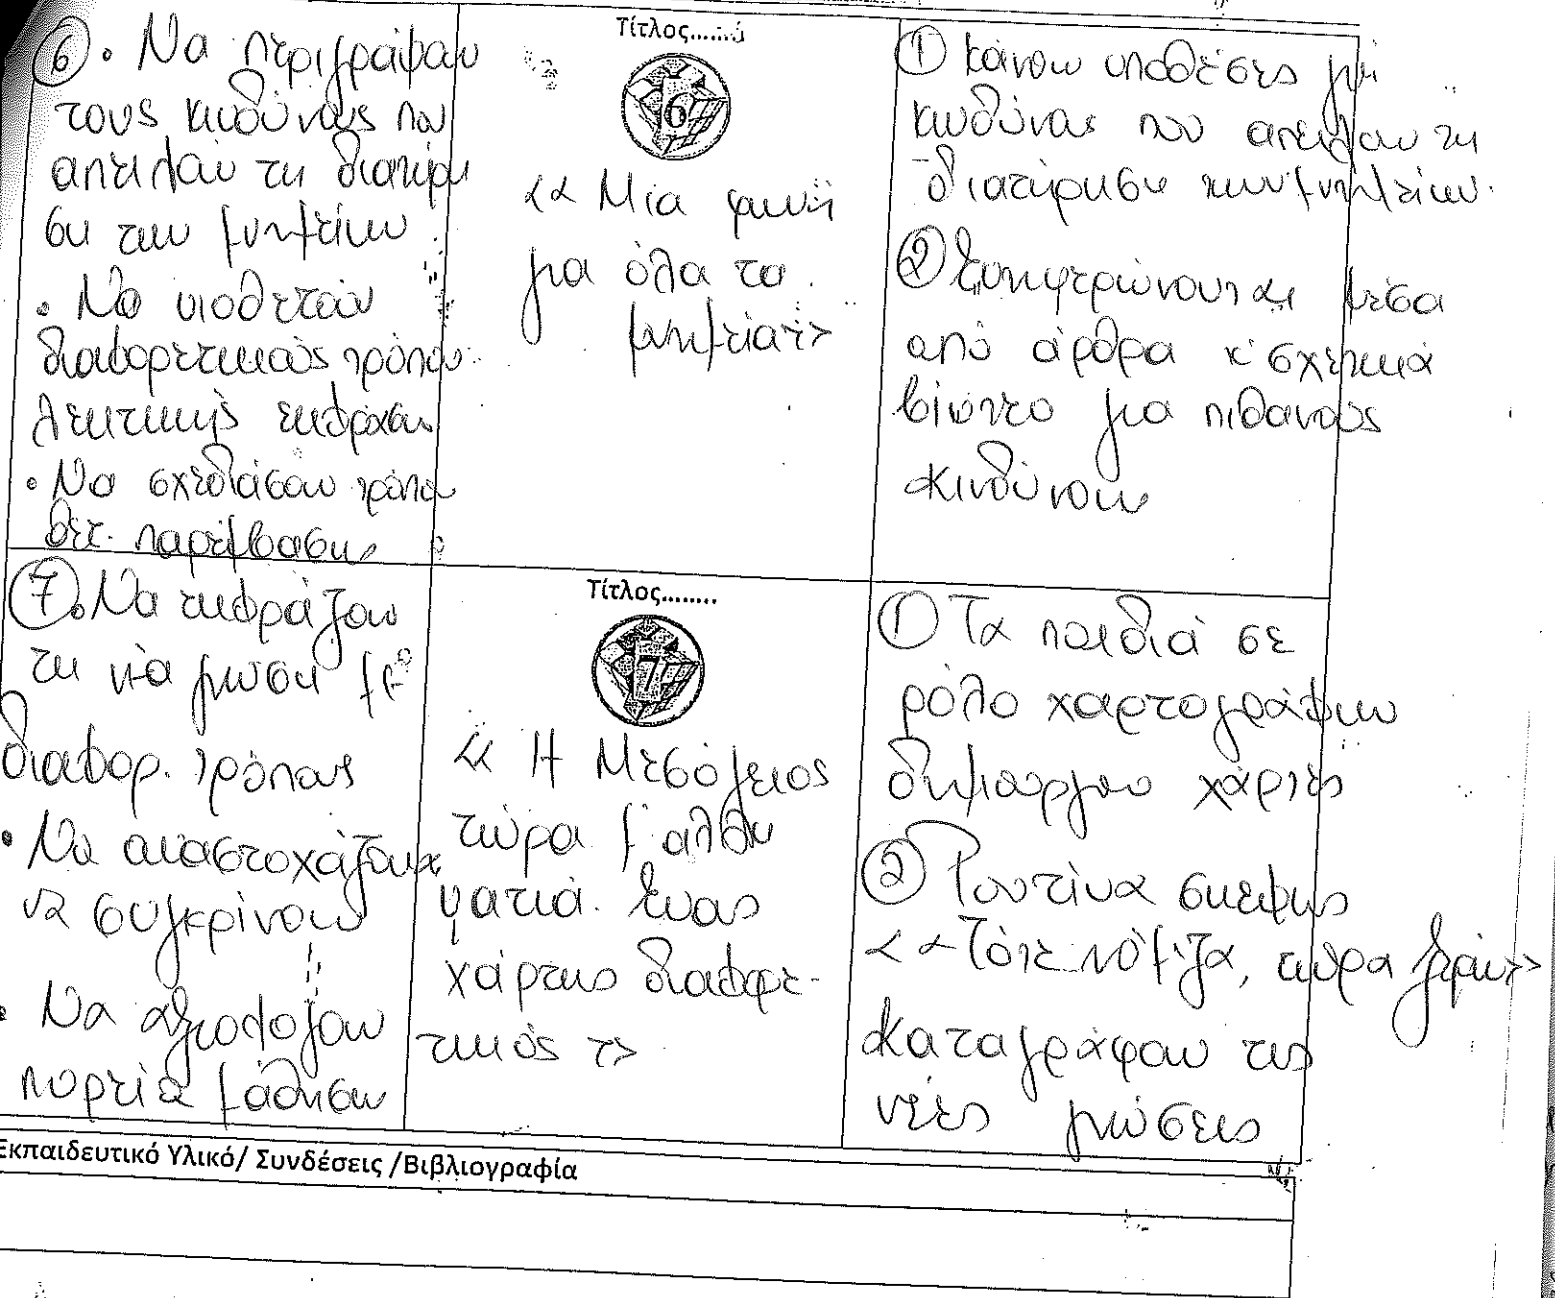 ⑥ • Να περιγράψουν
τους κινδύνους που
απειλούν τη διατήρη
ση των μνημείων
• Να υιοθετούν
διαφορετικούς τρόπου
λεκτικής έκφρασης
• Να σχεδιάσουν τρόπο
θετ. παρέμβασης
Τίτλος........
6
<< Μία φωνή
για όλα τα
μνημεία>>
① Κάνουν υποθέσεις για
κινδύνους που απειλούν τη
διατήρηση των μνημείων.
② Ενημερώνονται μέσα
από άρθρα κ' σχετικά
βίντεο για πιθανούς
κινδύνους
⑦ • Να εκφράζουν
τη νέα γνώση με
διαφορ. τρόπους
• Να αναστοχάζονται
να συγκρίνουν
• Να αξιολογούν
πορεία μάθησης
Τίτλος........
7
<< Η Μεσόγειος
τώρα μ' άλλη
ματιά. Ένας
χάρτης διαφορε-
τικός >>
① Τα παιδιά σε
ρόλο χαρτογράφων
δημιουργούν χάρτες
② Ρουτίνα σκέψης
<< Τότε νόμιζα, τώρα ξέρω>>
Καταγράφουν τις
νέες γνώσεις
Εκπαιδευτικό Υλικό/ Συνδέσεις /Βιβλιογραφία